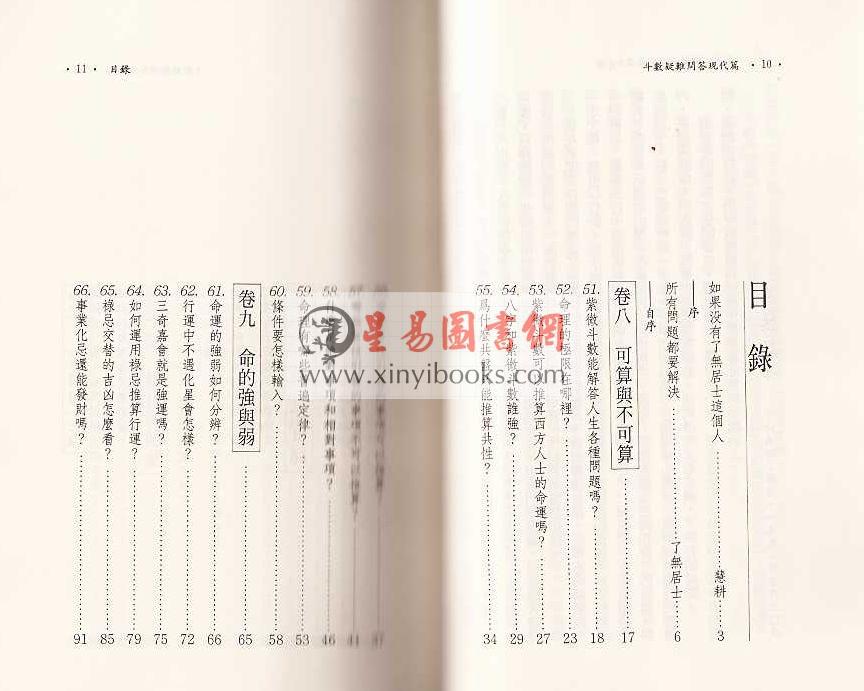 斗數疑難問答現代篇 ・10・
目錄
如果沒有了無居士這個人 慧耕 3
——序
所有問題都要解決 ………… 了無居士 … 6
——自序
卷八 可算與不可算 ………… 17
51. 紫微斗數能解答人生各種問題嗎? ………… 18
52. 命理的極限在哪裡? ………… 23
53. 紫微斗數可以推算西方人士的命運嗎? ………… 27
54. 八字和紫微斗數誰強? ………… 29
55. 爲什麼共 能推算共性? ………… 34
・11・ 目錄
37
57. 41
58. 項和相對事項? ………… 46
59. 命 有 此 過定律? ………… 53
60. 條件要怎樣輸入? ………… 58
卷九 命的強與弱 ………… 65
61. 命運的強弱如何分辨? ………… 66
62. 行運中不遇化星會怎樣? ………… 72
63. 三奇嘉會就是強運嗎? ………… 75
64. 如何運用祿忌推算行運? ………… 79
65. 祿忌交替的吉凶怎麼看? ………… 85
66. 事業化忌還能發財嗎? ………… 91
星易圖書網
www.xinyibooks.com